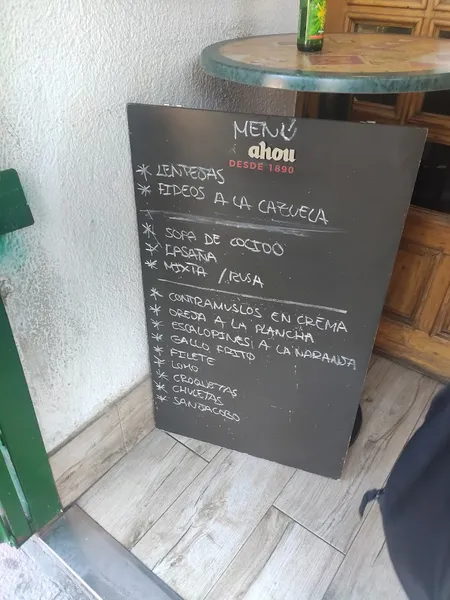 MENÚ
ahou
DESDE 1890
* LENTEJAS
* FIDEOS A LA CAZUELA
* SOPA DE COCIDO
* LASAÑA
* MIXTA / RUSA
* CONTRAMUSLOS EN CREMA
* OREJA A LA PLANCHA
* ESCALOPINES A LA NARANJA
* GALLO FRITO
* FILETE
* LOMO
* CROQUETAS
* CHULETAS
* SANJACOBO